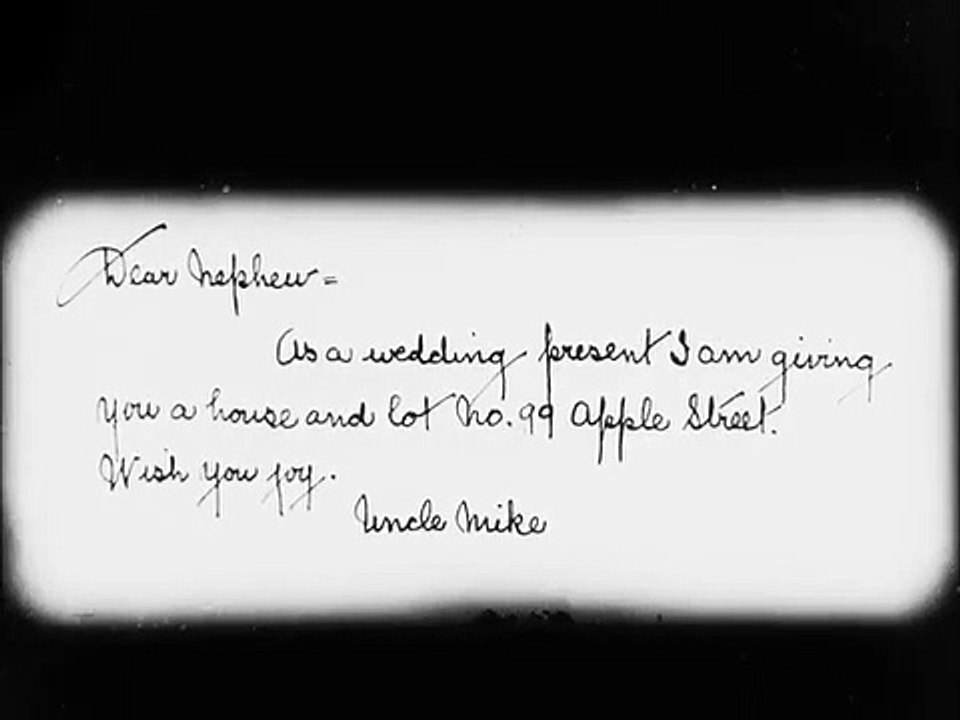 Dear Nephew =
As a wedding present I am giving
you a house and lot No. 99 Apple Street.
Wish you joy.
Uncle Mike